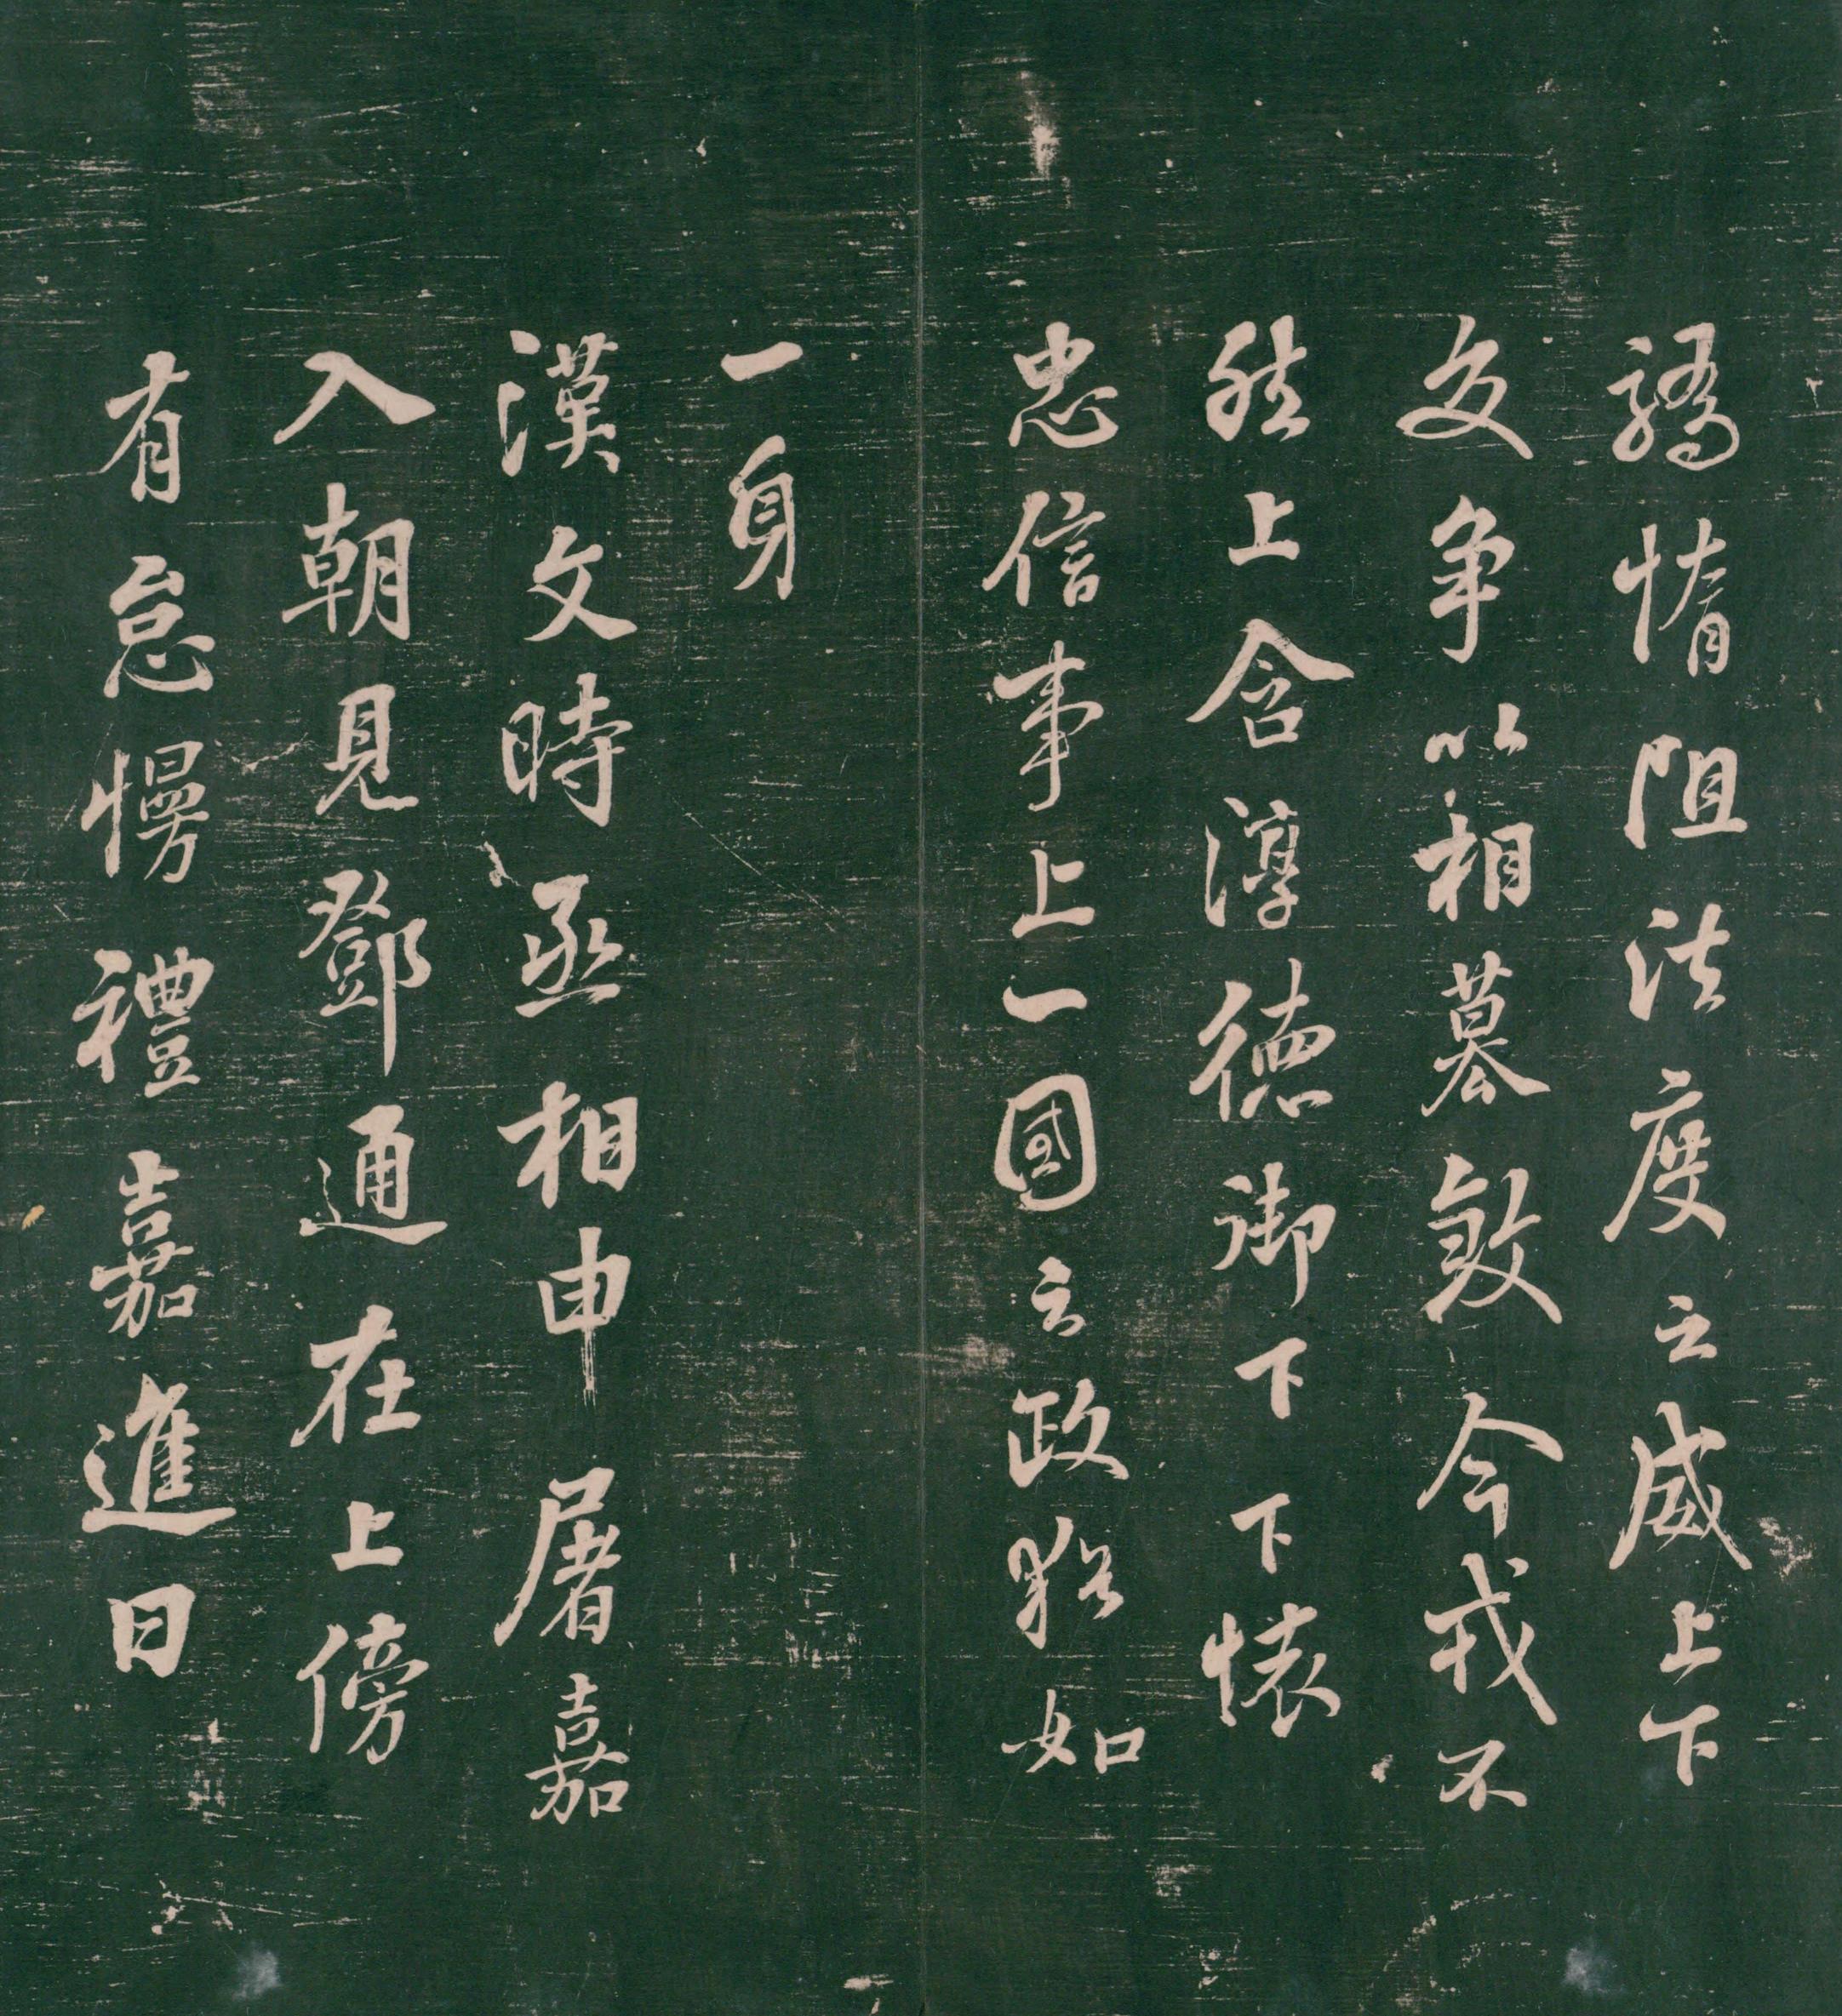 驕惰阻法度之威上下
交争以相墓敚今戎不
然上含淳德御下下懐
忠信事上一國之政猶如
一身
漢文時丞相申屠嘉
入朝見鄧通在上傍
有怠慢禮嘉進曰